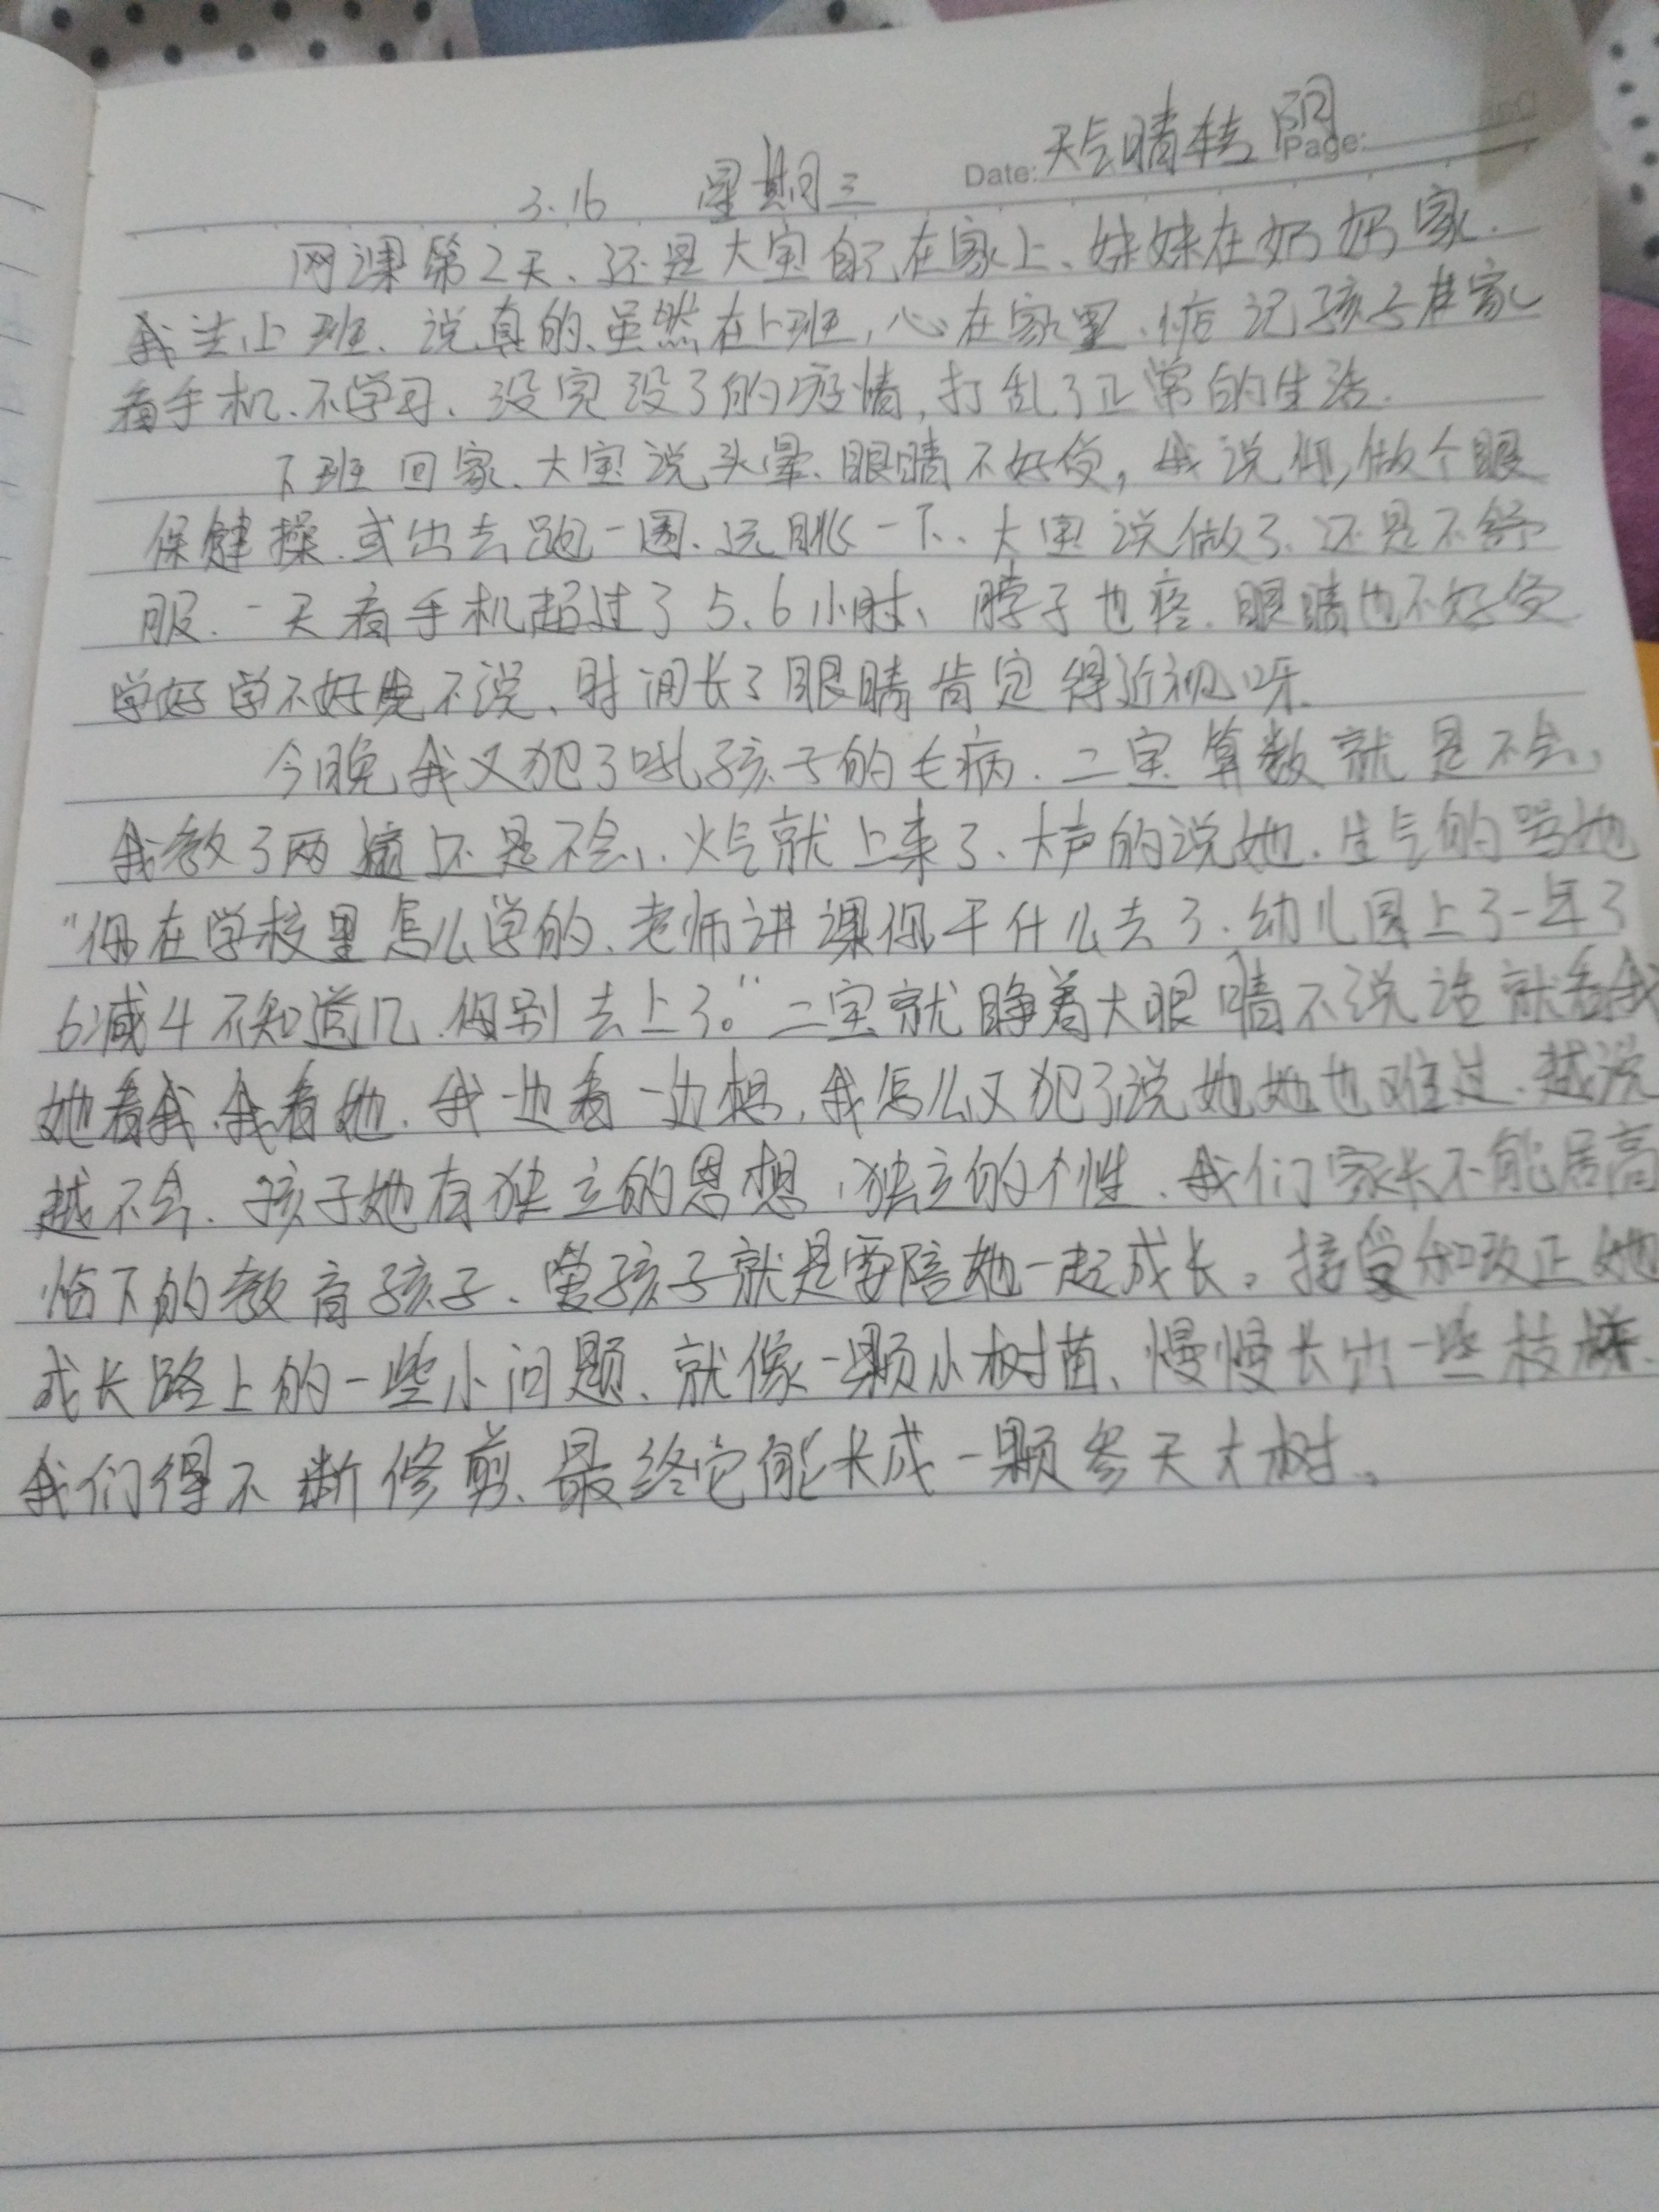 天气晴转阴
Date: Page:
3.16 星期三
网课第2天、还是大宝自己在家上、妹妹在奶奶家.
我去上班、说真的、虽然在上班,心在家里、惦记孩子在家
看手机、不学习、没完没了的疫情,打乱了正常的生活.
下班回家、大宝说头晕、眼睛不好受,我说你,做个眼
保健操.或出去跑一圈.远眺一下、大宝说做了、还是不舒
服.一天看手机超过了5、6小时、脖子也疼.眼睛也不好受
学好学不好先不说、时间长了眼睛肯定得近视呀.
今晚我又犯了吼孩子的毛病.二宝算数就是不会,
我教了两遍还是不会、火气就上来了、大声的说她.生气的骂她
“你在学校里怎么学的、老师讲课你干什么去了.幼儿园上了一年了
6减4不知道几.你别去上了。”二宝就睁着大眼睛不说话就看我
她看我、我看她.我一边看一边想,我怎么又犯了说她她也难过.越说
越不会.孩子她有独立的思想,独立的个性.我们家长不能居高
临下的教育孩子、管孩子就是要陪她一起成长,接受和改正她
成长路上的一些小问题、就像一颗小树苗、慢慢长出一些枝桠.
我们得不断修剪、最终它能长成一颗参天大树。